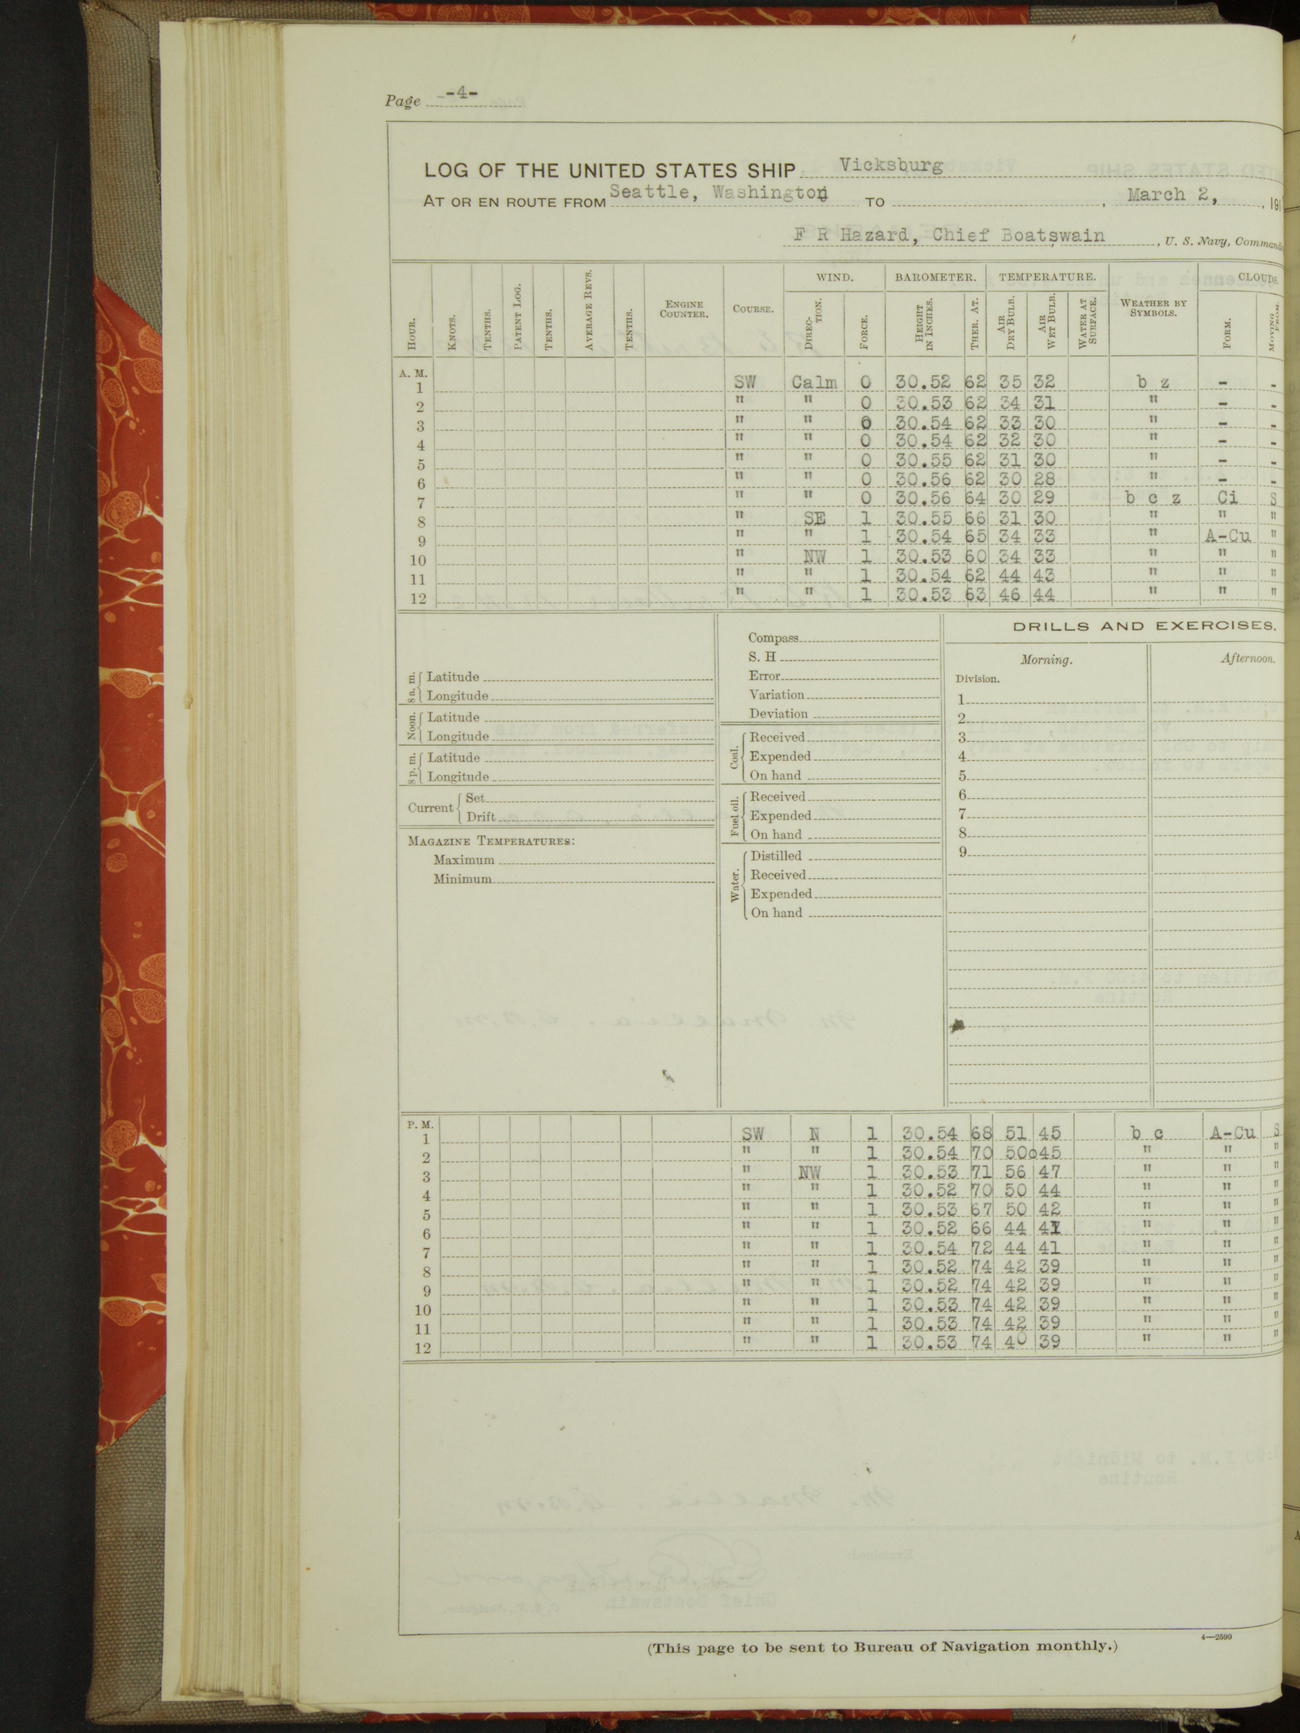 Page -4-
LOG OF THE UNITED STATES SHIP Vicksburg
AT OR EN ROUTE FROM Seattle, Washington TO , March 2, , 191
F R Hazard, Chief Boatswain , U. S. Navy, Command
HOUR. KNOTS. TENTHS. PATENT LOG. TENTHS. AVERAGE REVS. TENTHS. ENGINE COUNTER. COURSE. WIND. DIREC-TION. FORCE. BAROMETER. HEIGHT IN INCHES. THER. AT. TEMPERATURE. AIR DRY BULB. AIR WET BULB. WATER AT SURFACE. WEATHER BY SYMBOLS. CLOUDS. FORM. MOVING FROM.
A. M.
1 SW Calm 0 30.52 62 35 32 b z - -
2 " " 0 30.53 62 34 31 " - -
3 " " 0 30.54 62 33 30 " - -
4 " " 0 30.54 62 32 30 " - -
5 " " 0 30.55 62 31 30 " - -
6 " " 0 30.56 62 30 28 " - -
7 " " 0 30.56 64 30 29 b c z Ci S
8 " SE 1 30.55 66 31 30 " " "
9 " " 1 30.54 65 34 33 " A-Cu "
10 " NW 1 30.53 60 34 33 " " "
11 " " 1 30.54 62 44 43 " " "
12 " " 1 30.53 63 46 44 " " "
8 a. m. Latitude
Longitude
Noon. Latitude
Longitude
8 p. m. Latitude
Longitude
Current Set
Drift
MAGAZINE TEMPERATURES:
Maximum
Minimum
Compass
S. H
Error
Variation
Deviation
Coal. Received
Expended
On hand
Fuel oil. Received
Expended
On hand
Water. Distilled
Received
Expended
On hand
DRILLS AND EXERCISES.
Morning. Afternoon.
Division.
1
2
3
4
5
6
7
8
9
P. M.
1 SW N 1 30.54 68 51 45 b c A-Cu S
2 " " 1 30.54 70 50 45 " " "
3 " NW 1 30.53 71 56 47 " " "
4 " " 1 30.52 70 50 44 " " "
5 " " 1 30.53 67 50 42 " " "
6 " " 1 30.52 66 44 41 " " "
7 " " 1 30.54 72 44 41 " " "
8 " " 1 30.52 74 42 39 " " "
9 " " 1 30.52 74 42 39 " " "
10 " " 1 30.53 74 42 39 " " "
11 " " 1 30.53 74 42 39 " " "
12 " " 1 30.53 74 40 39 " " "
(This page to be sent to Bureau of Navigation monthly.)
4—2599